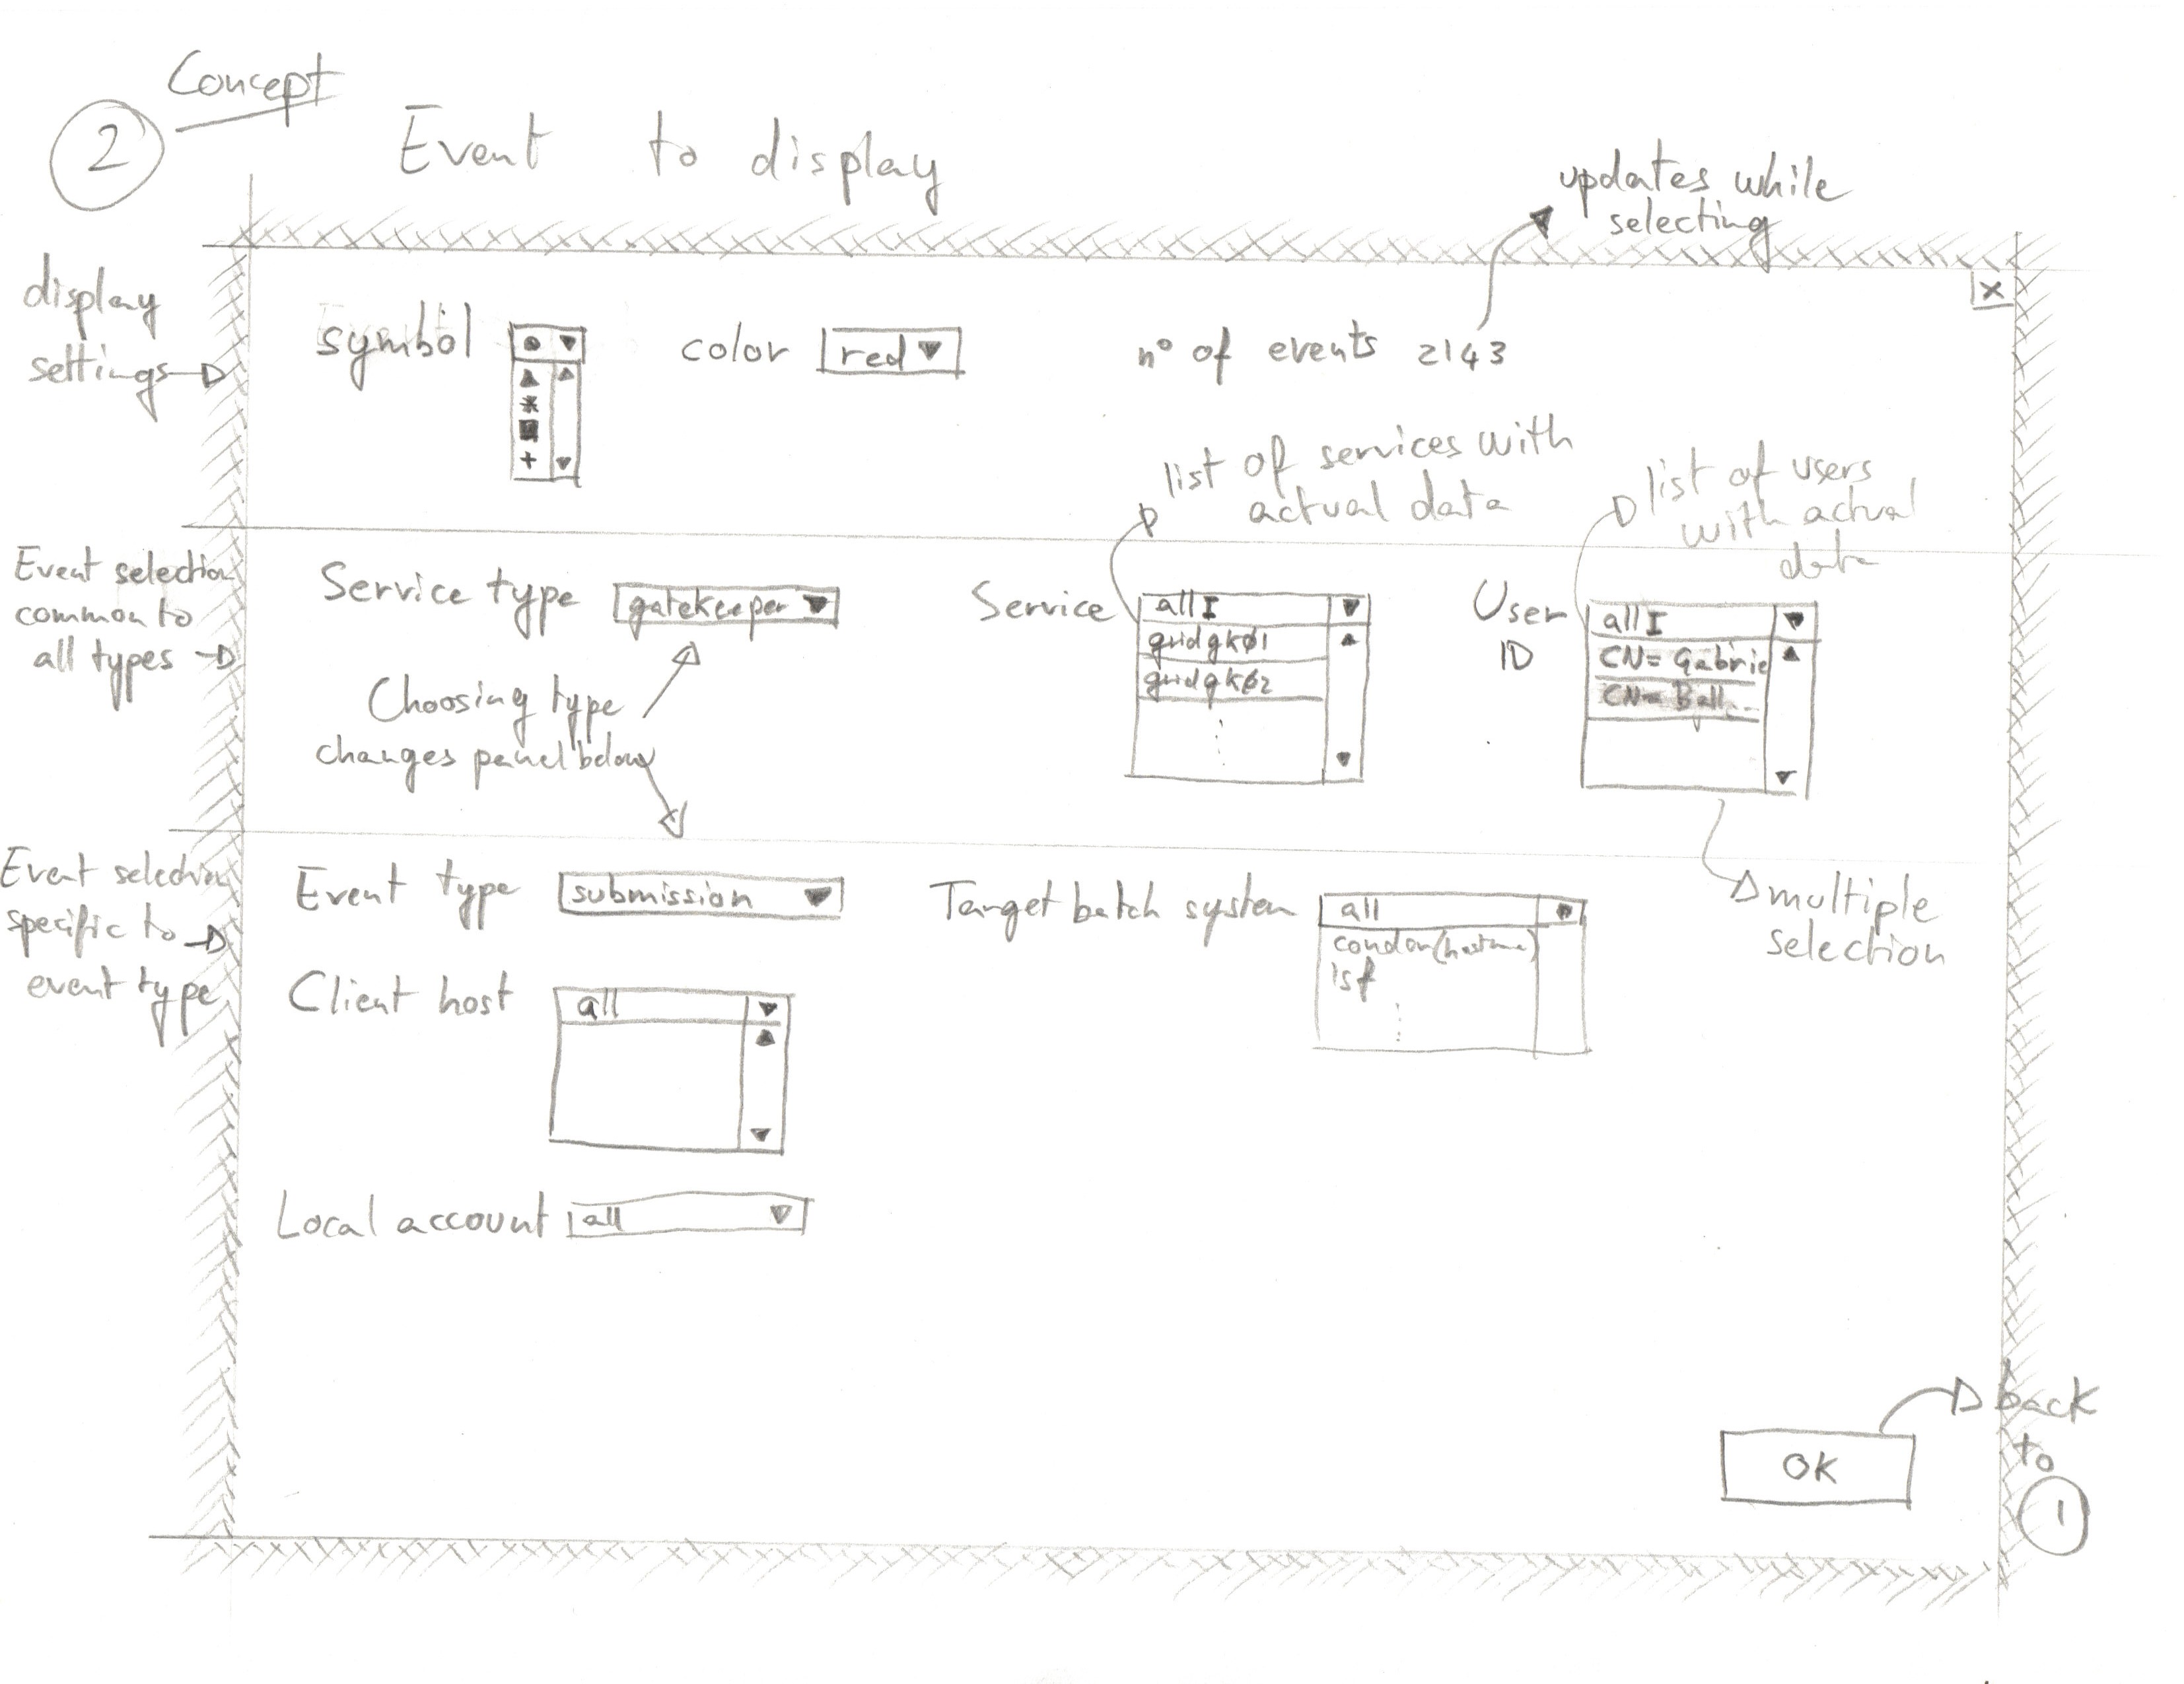 Concept
2
Event to display
updates while
selecting
display
settings
x
symbol
color
red
n° of events 2143
list of services with
actual data
list of users
with actual
data
Event selection
common to
all types
Service type
gatekeeper
Choosing type
changes panel below
Service
all
gridgk01
gridgk02
User
ID
all
CN= Gabrie
CN= Ball...
multiple
selection
Event selection
specific to
event type
Event type
submission
Target batch system
all
condor(hostname)
lsf
Client host
all
Local account
all
OK
back
to
1